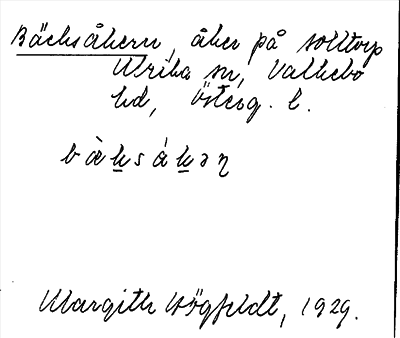 Bäcksåkern, åker på Solltorp
Ulrika sn, Valkebo
hd, Österg. l.
bæ̀ksákəɳ
Margith Högfeldt, 1929.